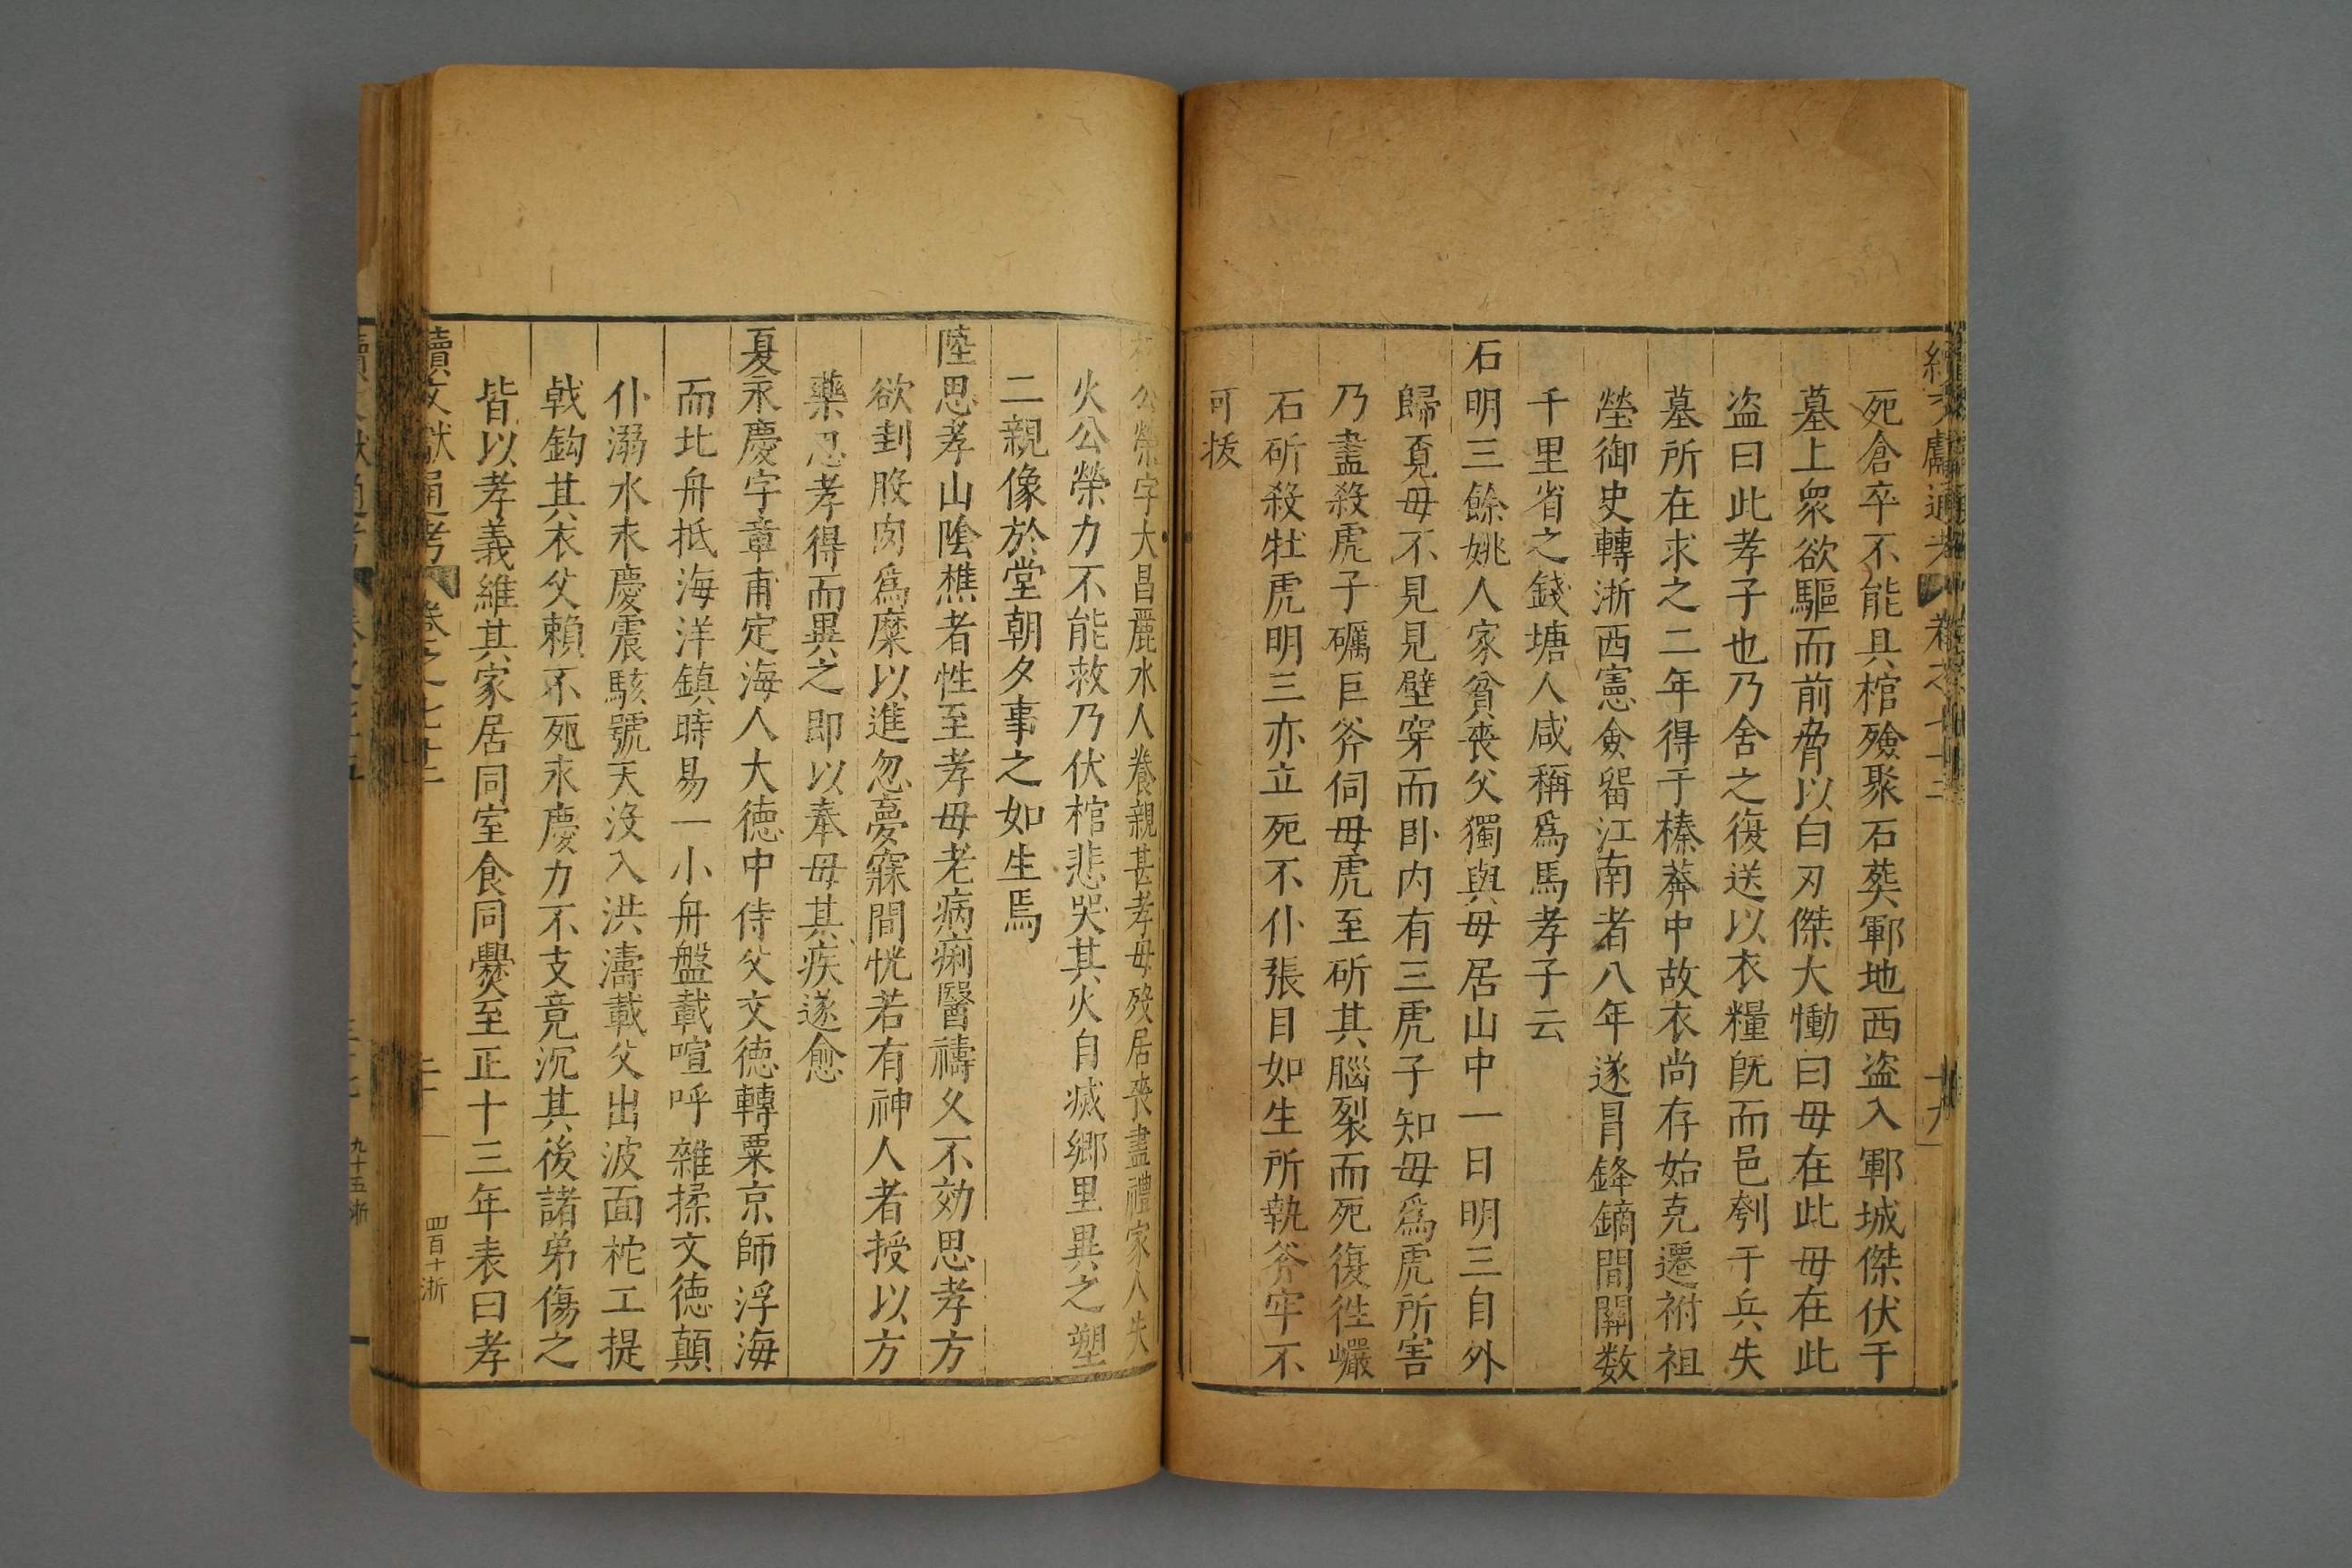 死倉卒不能具棺殮聚石葬鄆地西盗入鄆城傑伏于
墓上衆欲驅而前脅以白刃傑大慟曰母在此母在此
盗曰此孝子也乃舍之復送以衣糧旣而邑刳于兵失
墓所在求之二年得于榛莽中故衣尚存始克遷祔祖
塋御史轉浙西憲僉留江南者八年遂冒鋒鏑間關数
千里省之錢塘人咸稱爲馬孝子云
石明三餘姚人家貧喪父獨與母居山中一日明三自外
歸覔母不見見壁穿而卧内有三虎子知母爲虎所害
乃盡殺虎子礪巨斧伺母虎至斫其腦裂而死復徃巗
石斫殺牡虎明三亦立死不仆張目如生所執斧牢不
可拔
公榮字大昌麗水人養親甚孝母歿居喪盡禮家人失
火公榮力不能救乃伏棺悲哭其火自滅鄉里異之塑
二親像於堂朝夕事之如生焉
陸思孝山隂樵者性至孝母老病痢醫禱久不効思孝方
欲刲股肉爲糜以進忽夢寐間恍若有神人者授以方
藥思孝得而異之即以奉母其疾遂愈
夏永慶字章甫定海人大徳中侍父文徳轉粟京師浮海
而北舟抵海洋鎮時易一小舟盤載喧呼雜揉文徳顛
仆溺水永慶震駭號天沒入洪濤載父出波面柁工提
戟鈎其衣父賴不死永慶力不支竟沉其後諸弟傷之
皆以孝義維其家居同室食同爨至正十三年表曰孝
續文獻通考 卷之七十二 二十 四百十浙
九十五浙